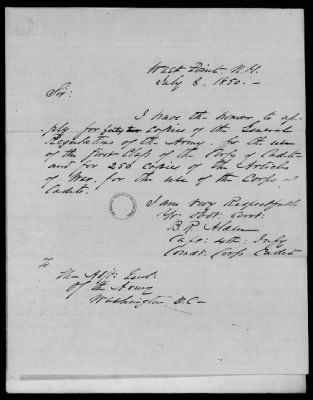 West Point, N.Y.
July 8, 1850.-
Sir:
I have the honor to ap-
ply for forty two copies of the General
Regulations of the Army for the use
of the first Class of the Corps of Cadets
and for 250 copies of the Articles
of War, for the use of the Corps of
Cadets.
I am Very Respectfully
Yr. Obdt. Servt.
B.R. Alden
Capt. 4th. Infy
Comdt. Corps Cadets
To
The Adjt. Genl.
Of the Army
Washington D.C-